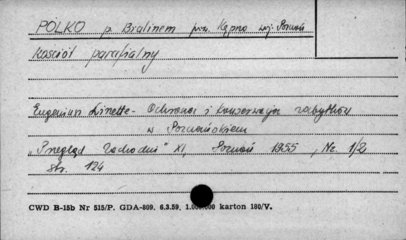 POLKO p. Bralinem pow. Kępno woj. Poznań
kościół parafialny
Eugeniusz Linette - Ochrona i konserwacja zabytków
w Poznańskiem
"Przegląd Zachodni" XI, Poznań 1955, Nr. 1/2
str. 124
CWD B-15b Nr 515/P. GDA-809. 6.3.59. 1.000.000 karton 180/V.